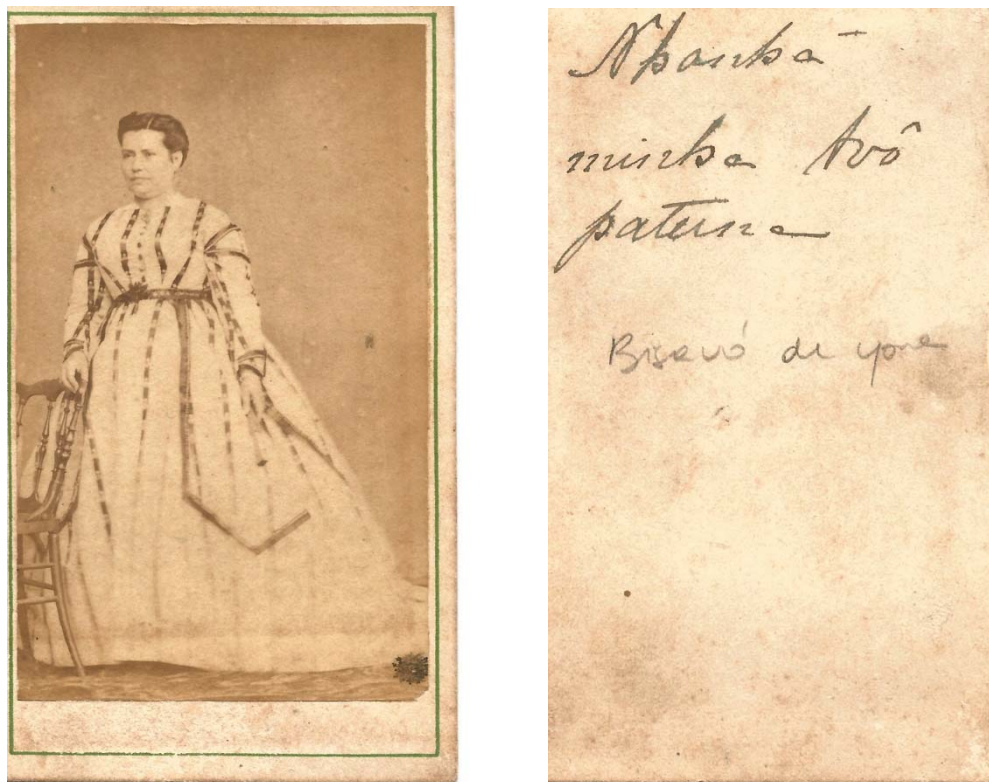 Nhanhã
minha Avó
paterna
Bisavó de Yone